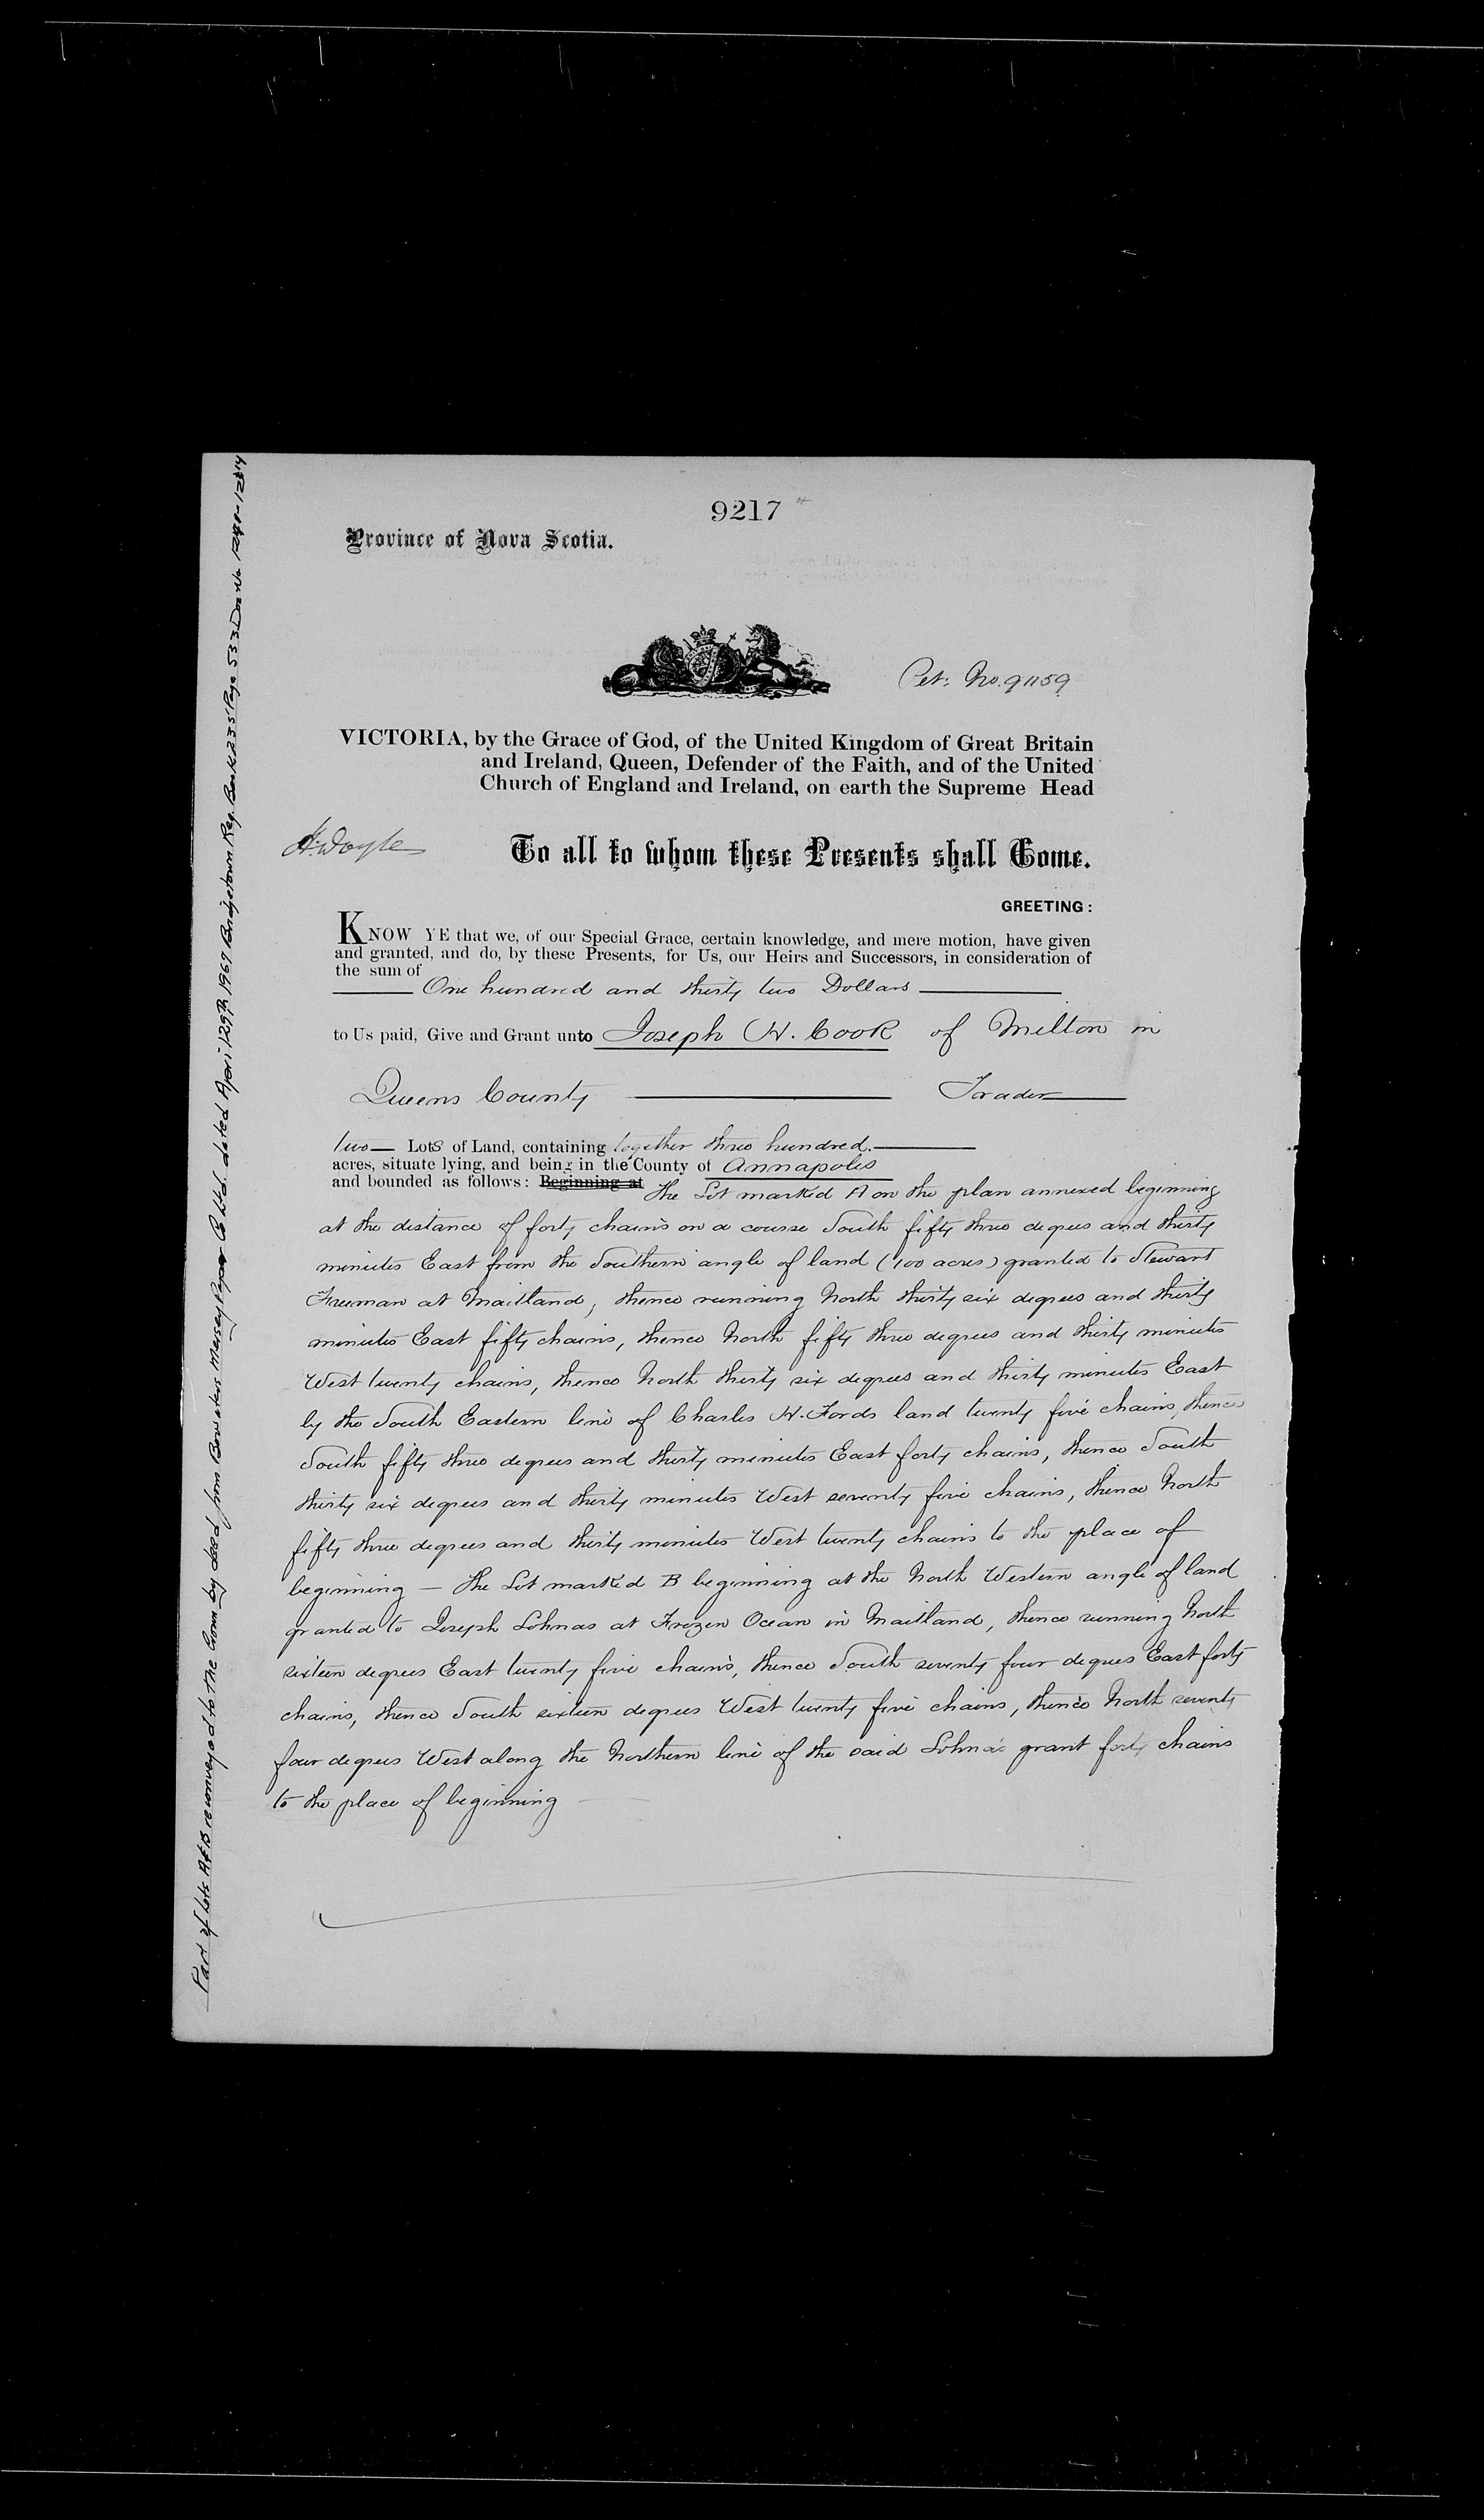 9217
Province of Nova Scotia.
Pet: No. 91159
VICTORIA, by the Grace of God, of the United Kingdom of Great Britain
and Ireland, Queen, Defender of the Faith, and of the United
Church of England and Ireland, on earth the Supreme Head
Doyle
To all to whom these Presents shall Come.
GREETING:
KNOW YE that we, of our Special Grace, certain knowledge, and mere motion, have given
and granted, and do, by these Presents, for Us, our Heirs and Successors, in consideration of
the sum of
One hundred and thirty two Dollars
to Us paid, Give and Grant unto Joseph H. Cook of Milton in
Queens County Trader
two Lots of Land, containing together three hundred
acres, situate lying, and being in the County of Annapolis
and bounded as follows: Beginning at The Lot marked A on the plan annexed beginning
at the distance of forty chains on a course South fifty three degrees and thirty
minutes East from the Southern angle of land (100 acres) granted to Stewart
Freeman at Maitland, thence running North thirty six degrees and thirty
minutes East fifty chains, thence North fifty three degrees and thirty minutes
West twenty chains, thence North thirty six degrees and thirty minutes East
by the South Eastern line of Charles H. Fords land twenty five chains, thence
South fifty three degrees and thirty minutes East forty chains, thence South
thirty six degrees and thirty minutes West seventy five chains, thence North
fifty three degrees and thirty minutes West twenty chains to the place of
beginning — The Lot marked B beginning at the North Western angle of land
granted to Joseph Lohnas at Frozen Ocean in Maitland, thence running North
sixteen degrees East twenty five chains, thence South seventy four degrees East forty
chains, thence South sixteen degrees West twenty five chains, thence North seventy
four degrees West along the Northern line of the said Lohnas grant forty chains
to the place of beginning
Part of Lots A & B reconveyed to the Crown by deed from Bowaters Mersey Paper Co Ltd. dated April 29th 1969 Bridgetown Reg. Book 235 Page 533 Doc No